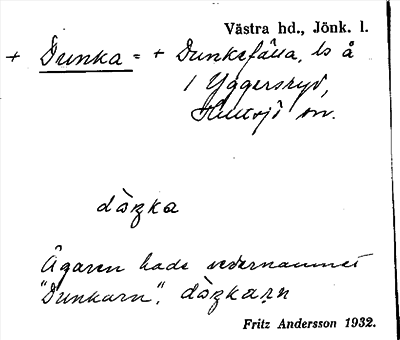 Västra hd., Jönk. l.
+ Dunka = + Dunkefälla, ls å
1 Yggersryd,
Hultsjö sn.
dàzka
Ägaren hade vedernamnet
"Dunkarn", dàzkaṇ
Fritz Andersson 1932.